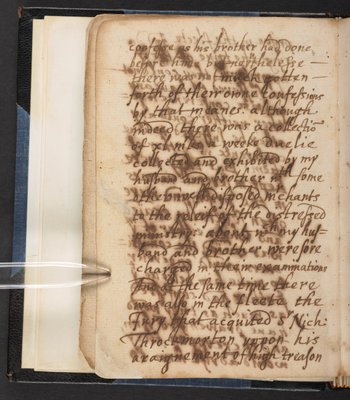 confesse as his brother had done
before him but nerthelesse
there was not much gotten
forth of their owne Confessions
by that meanes. although
indeed there was a collectiō
of xl mks a weeke duelie
collected and exhibited by my
husband and brother wth some
other well disposed mchants
to the releif of the distressed
about wch my hus=
band and brother were sore
charged in their examinations
And at the same time there
was also in the fleete the
Iury that acquited Sr Nich:
Throckmorton uppon his
araignement of high treason